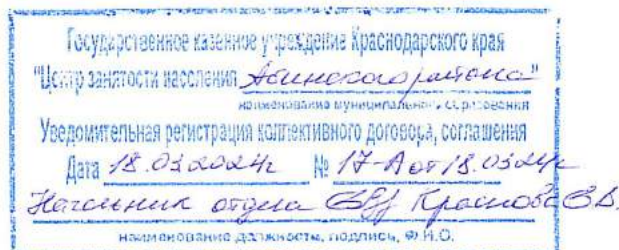 Государственное казенное учреждение Краснодарского края
"Центр занятости населения Абинского района"
наименование муниципального образования
Уведомительная регистрация коллективного договора, соглашения
Дата 18.03.2024г № 17-А от 18.03.24г
Начальник отдела Краснова В.В.
наименование должности, подпись, Ф.И.О.